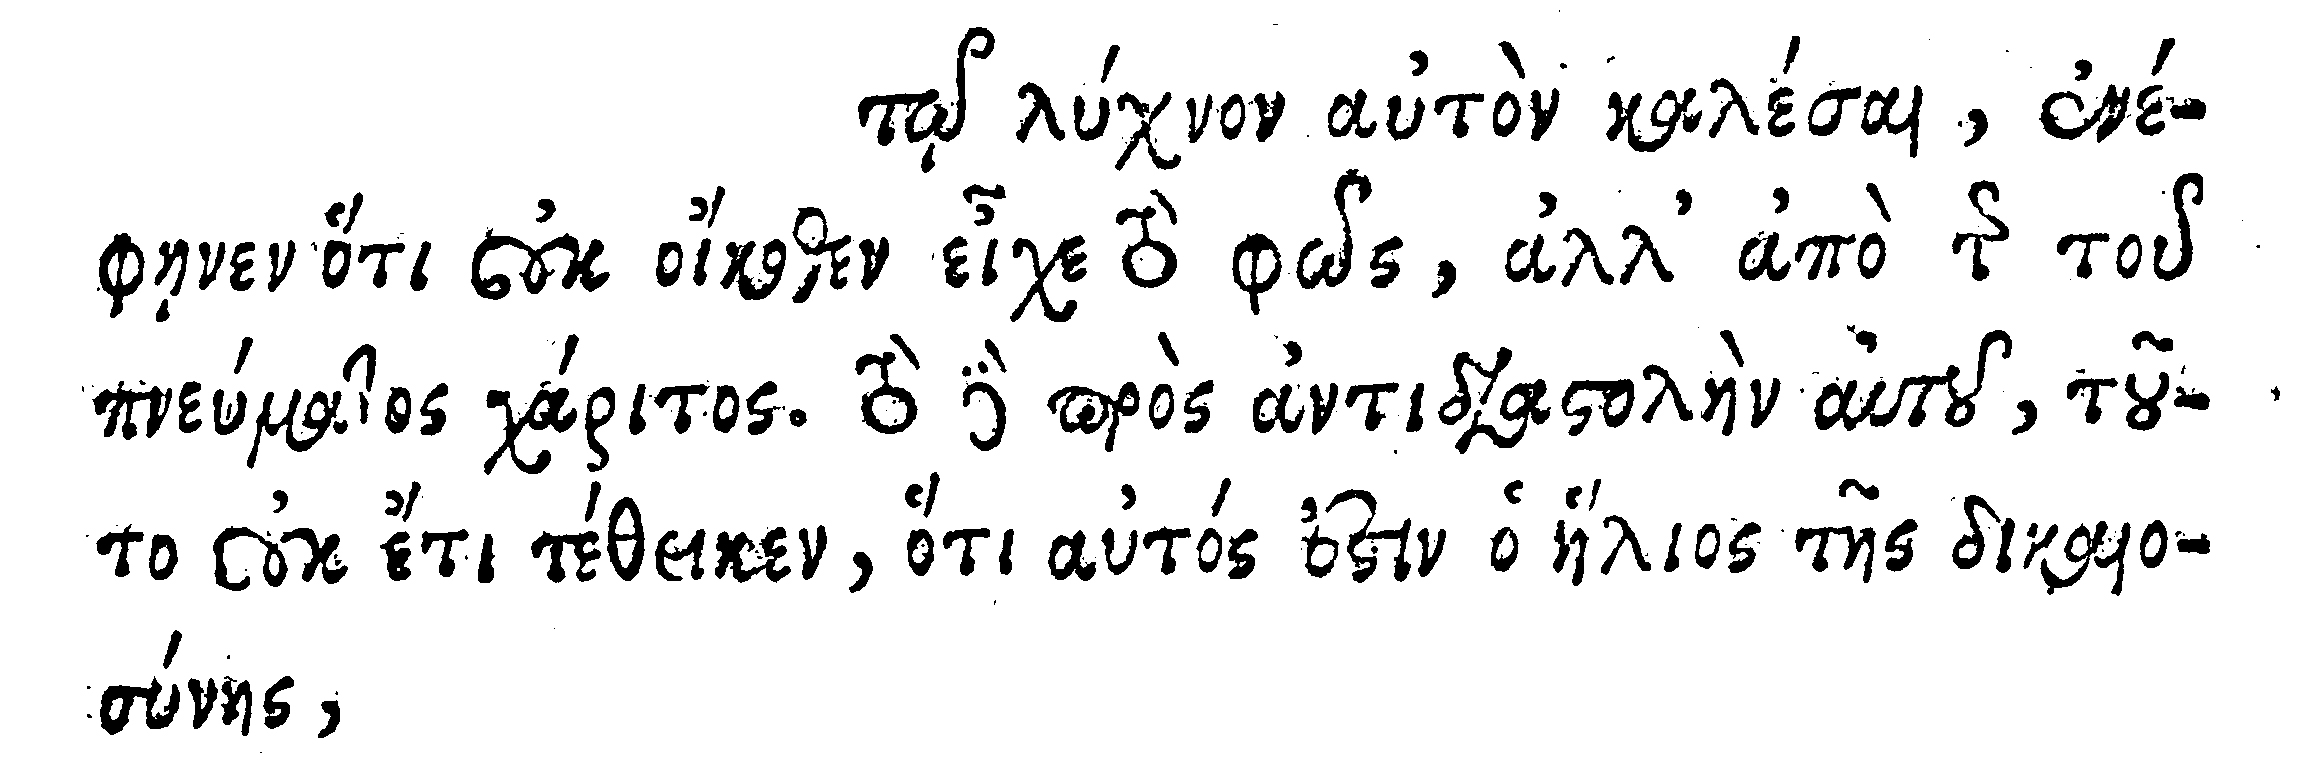 τῷ λύχνον αὐτὸν καλέσαι, ἐνέ-
φῃνεν ὅτι οὐκ οἴκοθεν εἶχε τὸ φῶς, ἀλλ’ ἀπὸ τῆς τοῦ
πνεύματος χάριτος. τὸ δὲ πρὸς ἀντιδιαστολὴν αὐτοῦ, τοῦ-
το οὐκ ἔτι τέθεικεν, ὅτι αὐτός ἐστιν ὁ ἥλιος τῆς δικαιο-
σύνης,